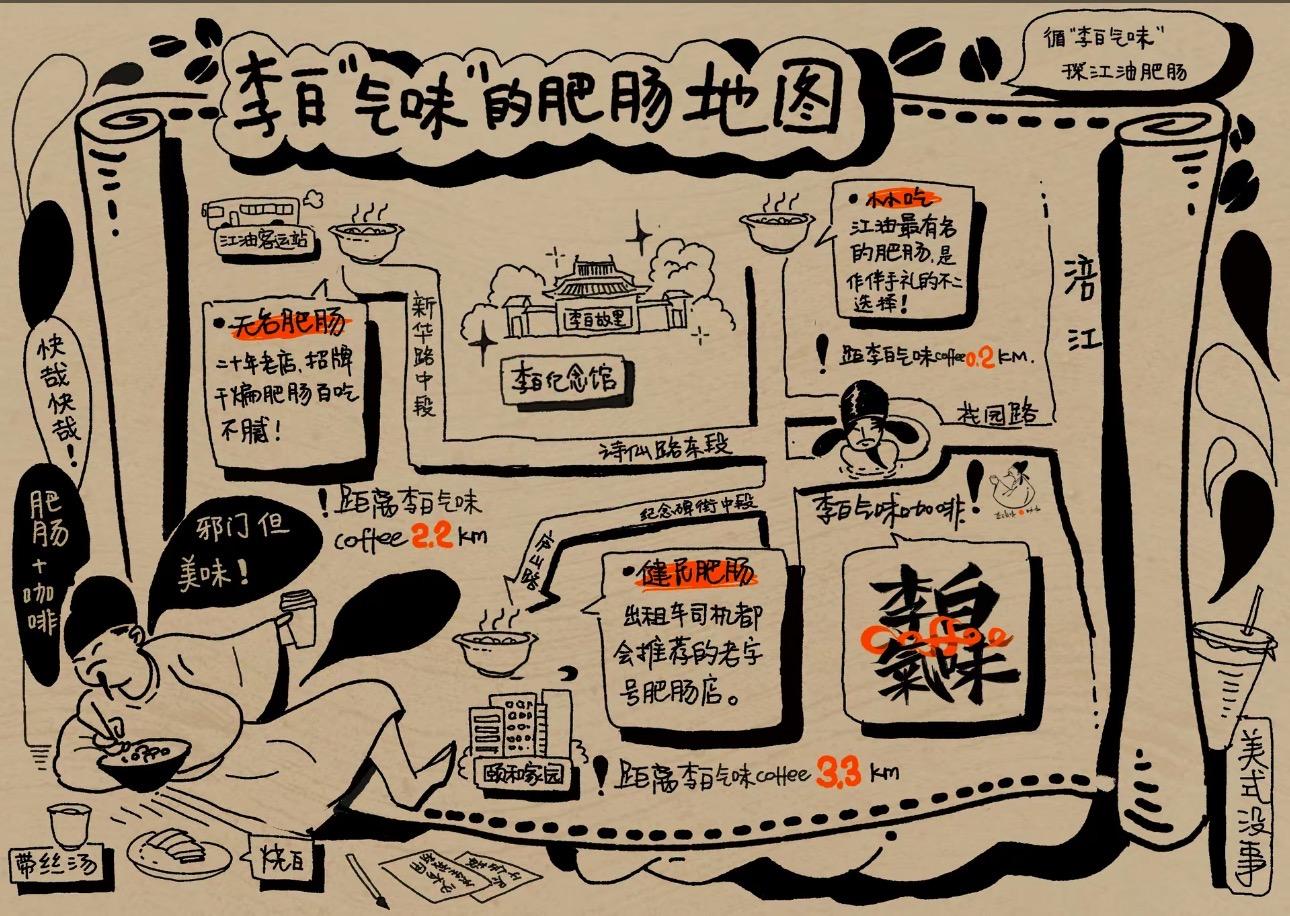 李白"气味"的肥肠地图
循"李白气味"
探江油肥肠
江油客运站
林林吃
江油最有名
的肥肠,是
作伴手礼的不二
选择!
距李白气味coffee0.2KM.
涪江
新华路中段
李白故里
李白纪念馆
无名肥肠
二十年老店,招牌
干煸肥肠百吃
不腻!
快哉快哉!
诗仙路东段
纪念碑街中段
庐山路
李白气味咖啡!
距离李白气味
coffee 2.2 km
肥肠+咖啡
邪门但
美味!
健民肥肠
出租车司机都
会推荐的老字
号肥肠店。
李白
coffee
氣味
颐和家园
距离李白气味coffee 3.3 km
美式没事
带丝汤
烧白